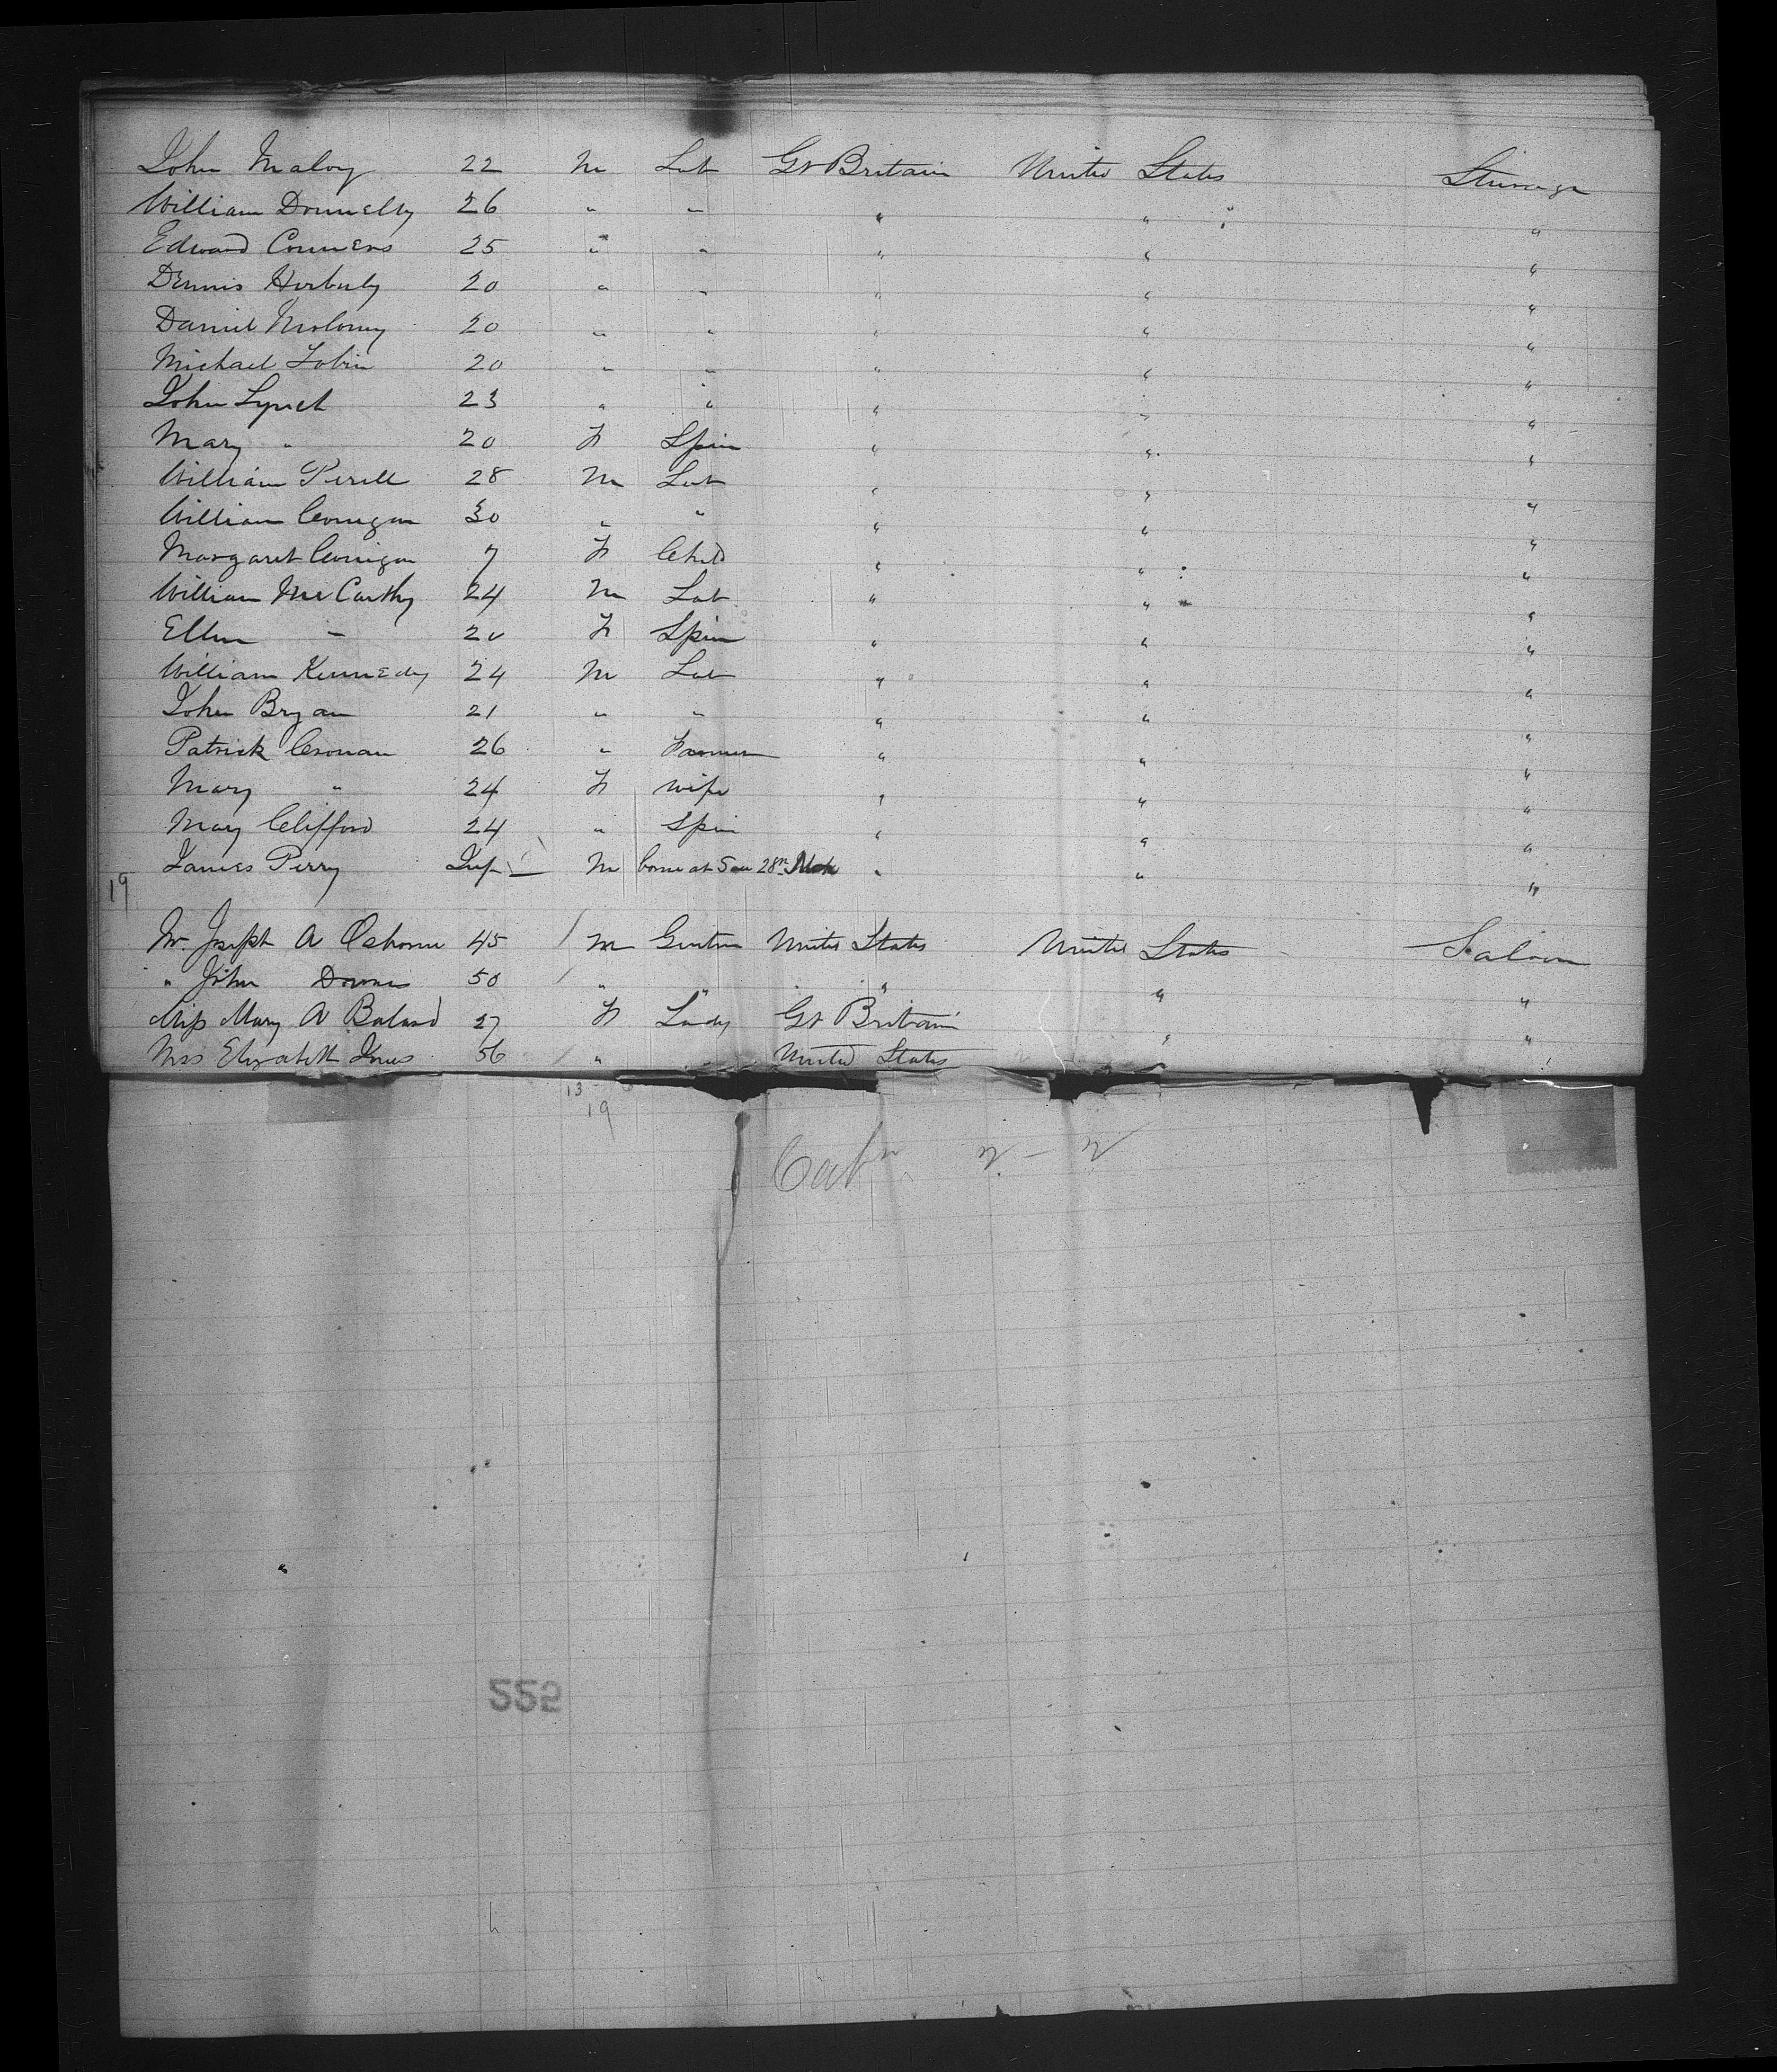 John Maloy 22 M Lab Gt Britain United States Steerage
William Donnelly 26 " " " " "
Edward Conners 25 " " " " "
Dennis Herbuly 20 " " " " "
Daniel Moloney 20 " " " " "
Michael Tobin 20 " " " " "
John Lynch 23 " " " " "
Mary " 20 F Spin " " "
William Perill 28 M Lab " " "
William Corrigan 30 " " " " "
Margaret Corrigan 7 F Child " " "
William McCarthy 24 M Lab " " "
Ellen " 20 F Spin " " "
William Kennedy 24 M Lab " " "
John Bryan 21 " " " " "
Patrick Cronan 26 " Farmer " " "
Mary " 24 F wife " " "
Mary Clifford 24 " Spin " " "
James Perry Inf M born at Sea 28th " " "
19
Mr. Joseph A Osborne 45 / M Gentm United States United States Saloon
" John Downes 50 / " " " " "
Miss Mary A Baland 27 F Lady Gt Britain " "
Mrs Elizabeth Jones 56 / " United States
13
19
Cabn 2 - 2
222